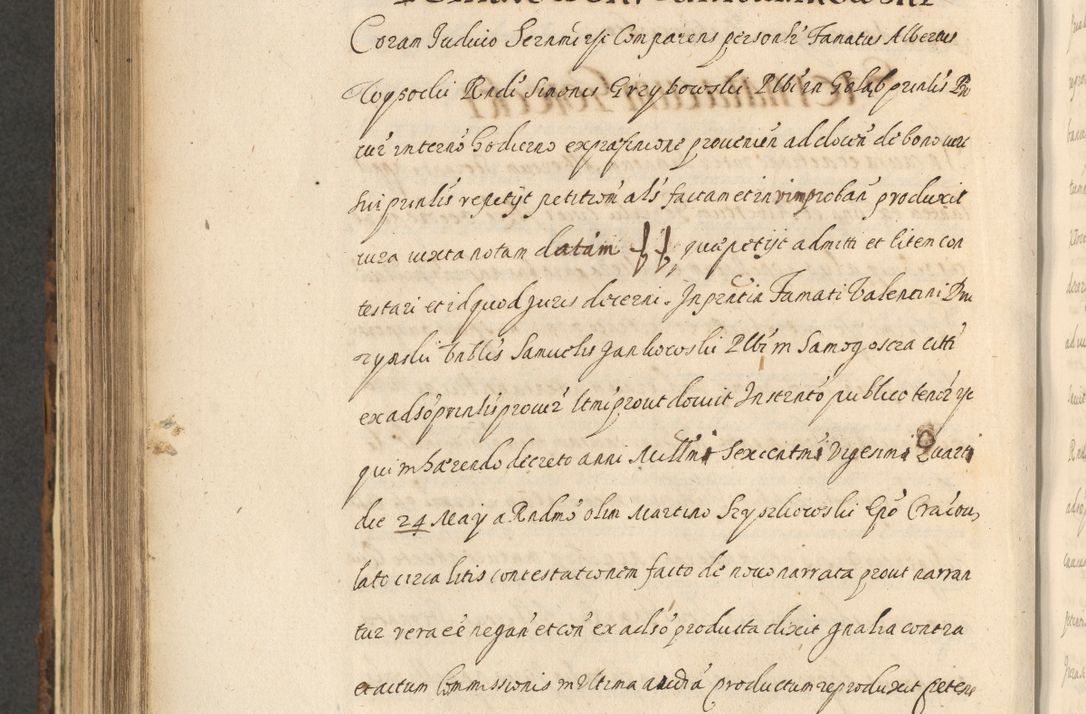 Coram Judicio Sernmi rse Comparens personlr Famatus Albertus
Topsockii Rndi Simonis Grzybowskii Plbi in Golab prinlis Pro
cur interno hodierno exprafinione provenien ad docen de bono iure
sui prinlis repetyt petition als factam et in vim proban produxit
iura iuxta notam datam quae petyt admitti et litem con
testari et id quod juris decerni. In prntia Famati Valentini
ryński Vnblis Samuelis Jankowskii Plbi in Samogoscza citti
ex adso prinlis procur ltmi prout docuit Instrnto publico tenor rse
qui inhaerendo decreto anni Millmi Sexcentmi Vigesimi Quarti
die 24 May a Rndmo olim Martino Szyszkowskii Epo Cracou,
lato circa litis contestationem facto de novo narrata prout narran
tur vera ee negan et con ex adso producta dixit gnalia contra
et actum Commissionis in Vltima audia productum reproduxit peten